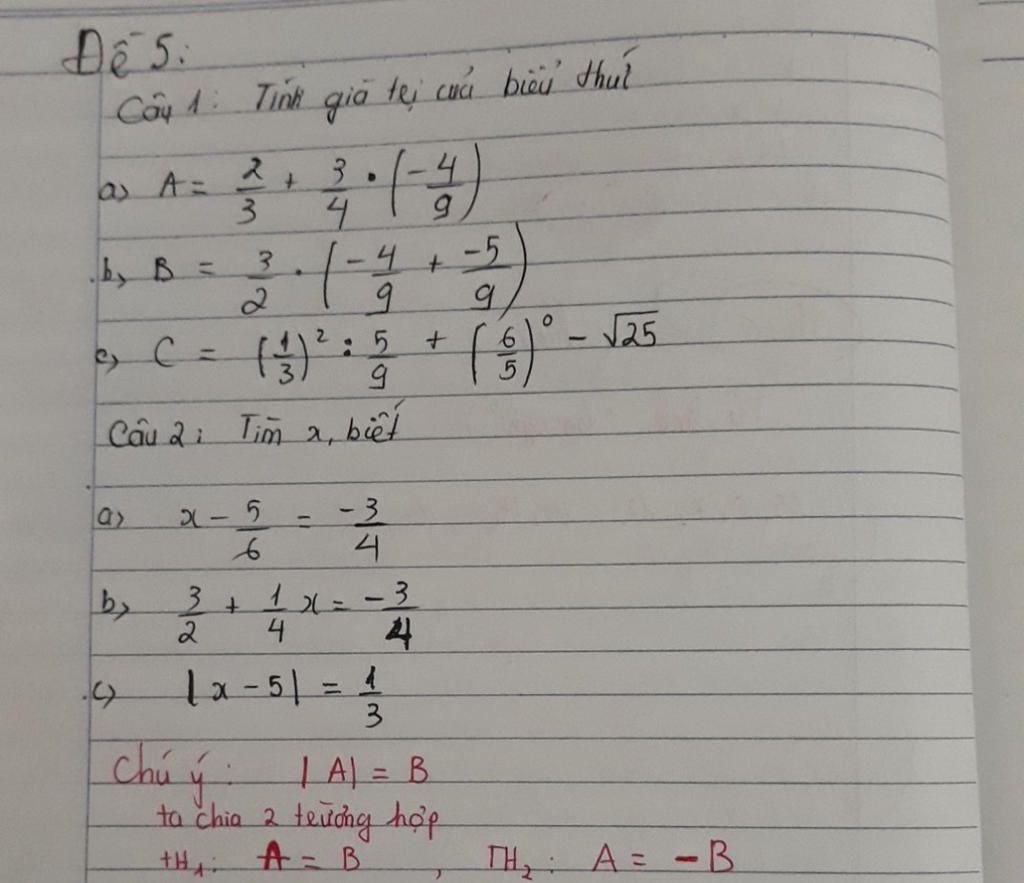 Đề 5:
Câu 1: Tính giá trị của biểu thức
a, A = 2/3 + 3/4 . (-4/9)
b, B = 3/2 . (-4/9 + -5/9)
c, C = (1/3)² : 5/9 + (6/5)⁰ - √25
Câu 2: Tìm x, biết
a, x - 5/6 = -3/4
b, 3/2 + 1/4 x = -3/4
c, |x - 5| = 1/3
Chú ý: |A| = B
ta chia 2 trường hợp
tH₁: A = B , TH₂: A = -B